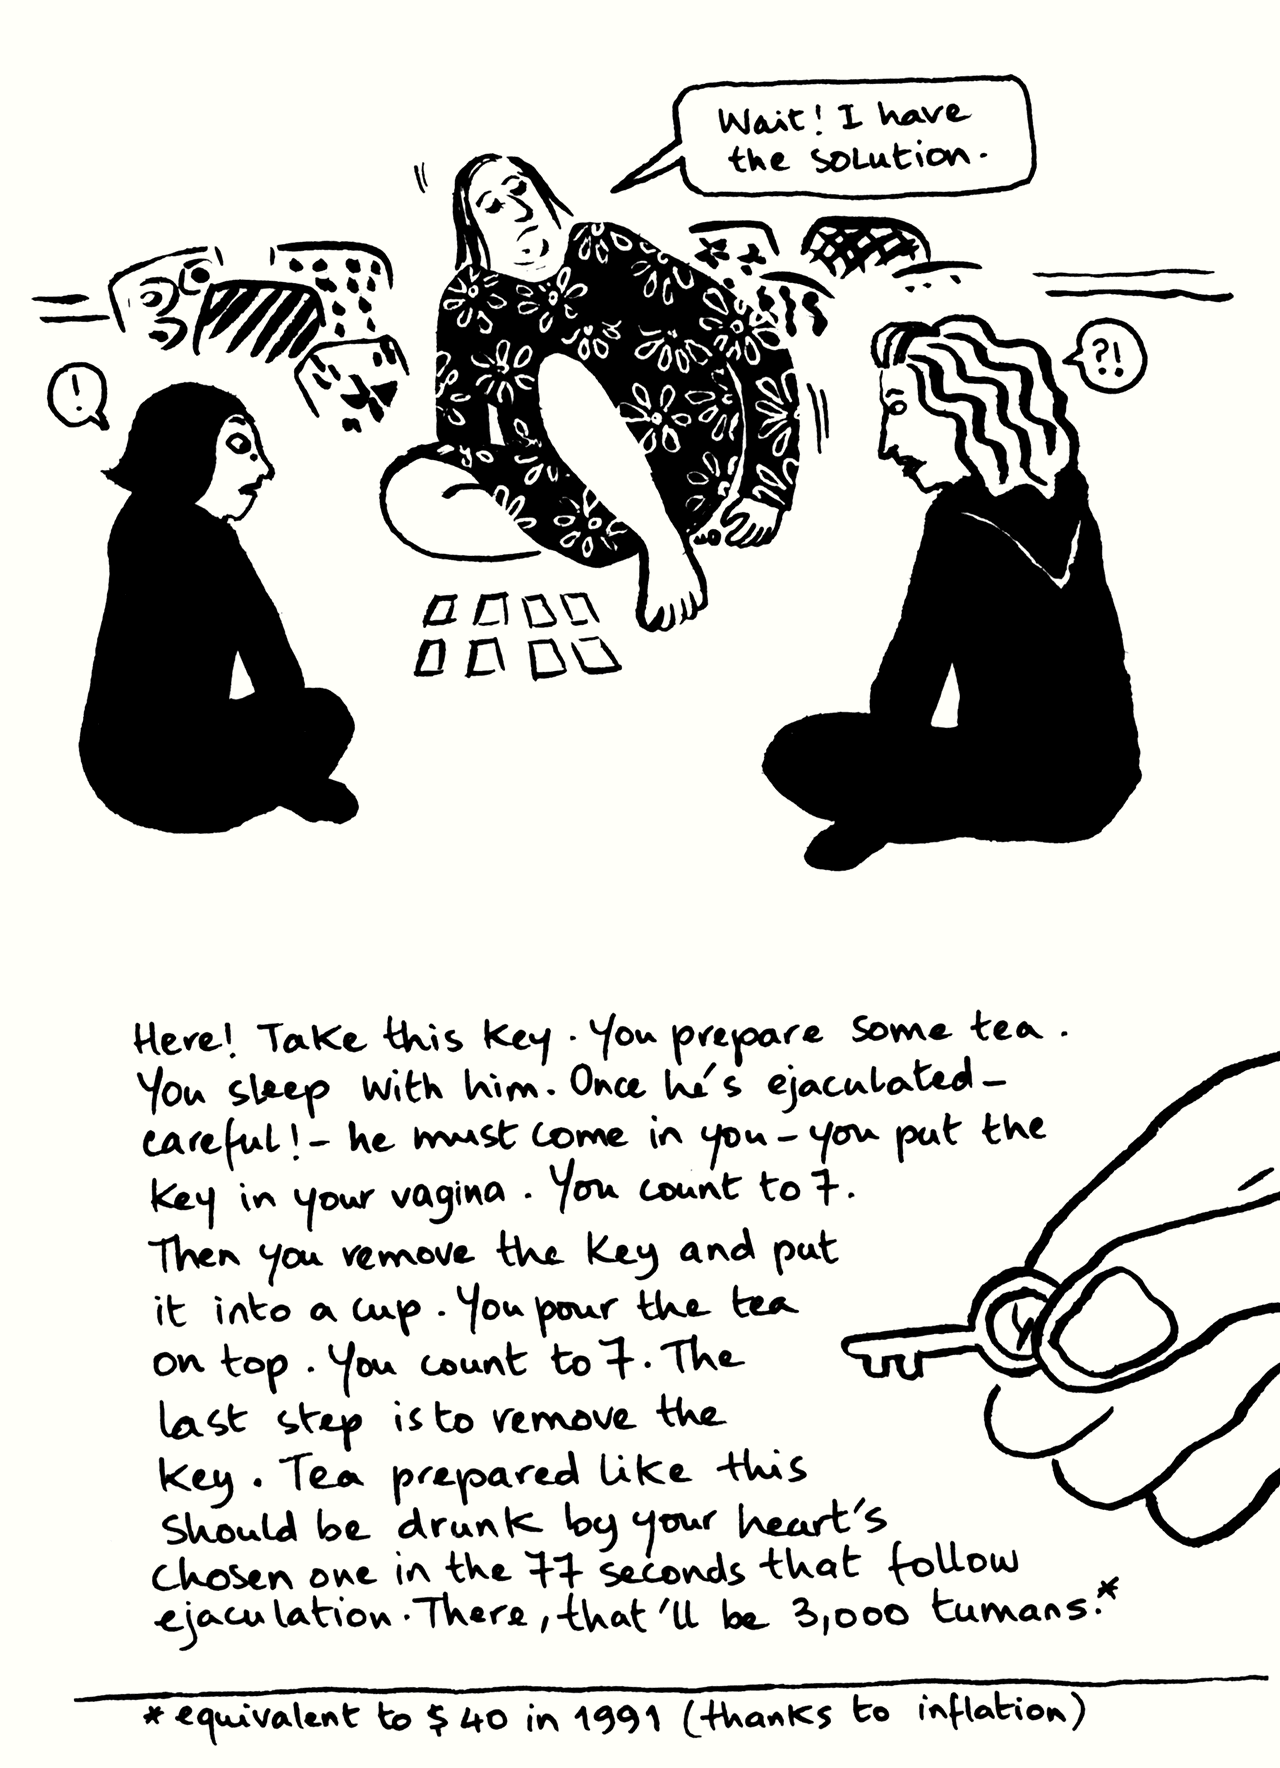 Wait! I have
the solution.
!
?!
Here! Take this key. You prepare some tea.
You sleep with him. Once he's ejaculated–
careful!– he must come in you– you put the
key in your vagina. You count to 7.
Then you remove the key and put
it into a cup. You pour the tea
on top. You count to 7. The
last step is to remove the
key. Tea prepared like this
should be drunk by your heart's
chosen one in the 77 seconds that follow
ejaculation. There, that'll be 3,000 tumans.*
* equivalent to $40 in 1991 (thanks to inflation)